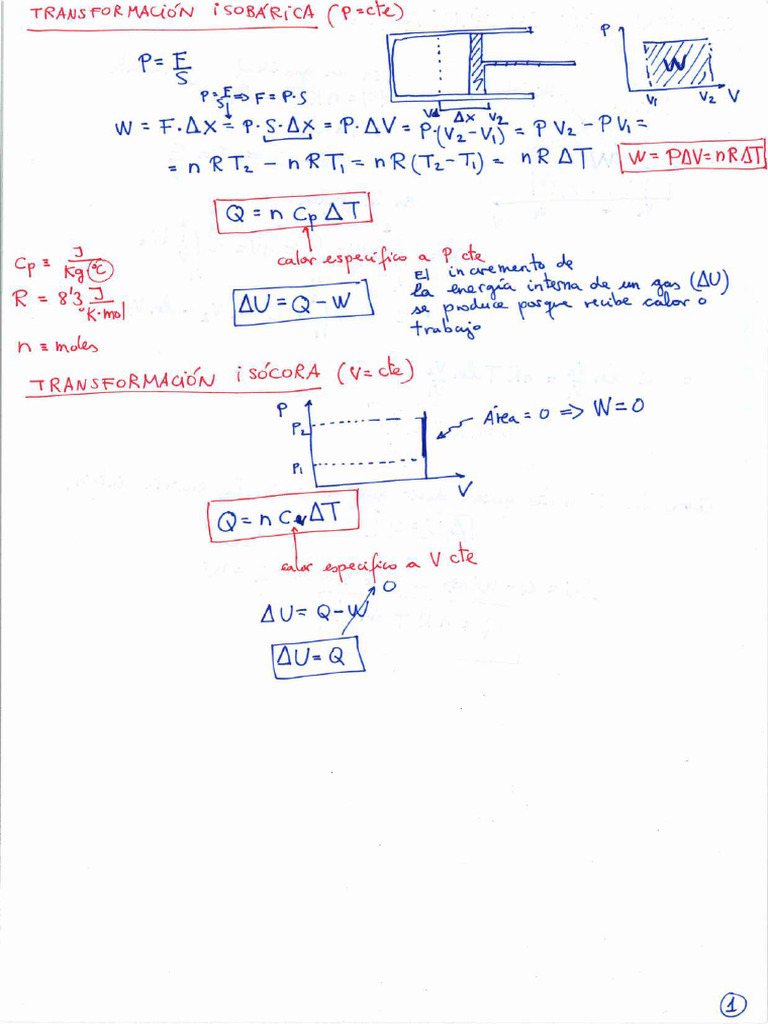 TRANSFORMACIÓN ISOBÁRICA (P=cte)
P = F/S
P = F/S ⇒ F = P·S
V1 Δx V2
P W V1 V2 V
W = F·Δx = P·S·Δx = P·ΔV = P·(V2 − V1) = PV2 − PV1 =
= nRT2 − nRT1 = nR(T2 − T1) = nRΔT
W = PΔV = nRΔT
Q = n Cp ΔT
calor específico a P cte
Cp ≡ J/Kg ºC
R = 8'3 J/ºK·mol
n ≡ moles
ΔU = Q − W
El incremento de
la energía interna de un gas (ΔU)
se produce porque recibe calor o
trabajo
TRANSFORMACIÓN ISÓCORA (V=cte)
P
P2
P1
V
Área = 0 ⇒ W = 0
Q = n Cv ΔT
calor específico a V cte
0
ΔU = Q − W
ΔU = Q
1